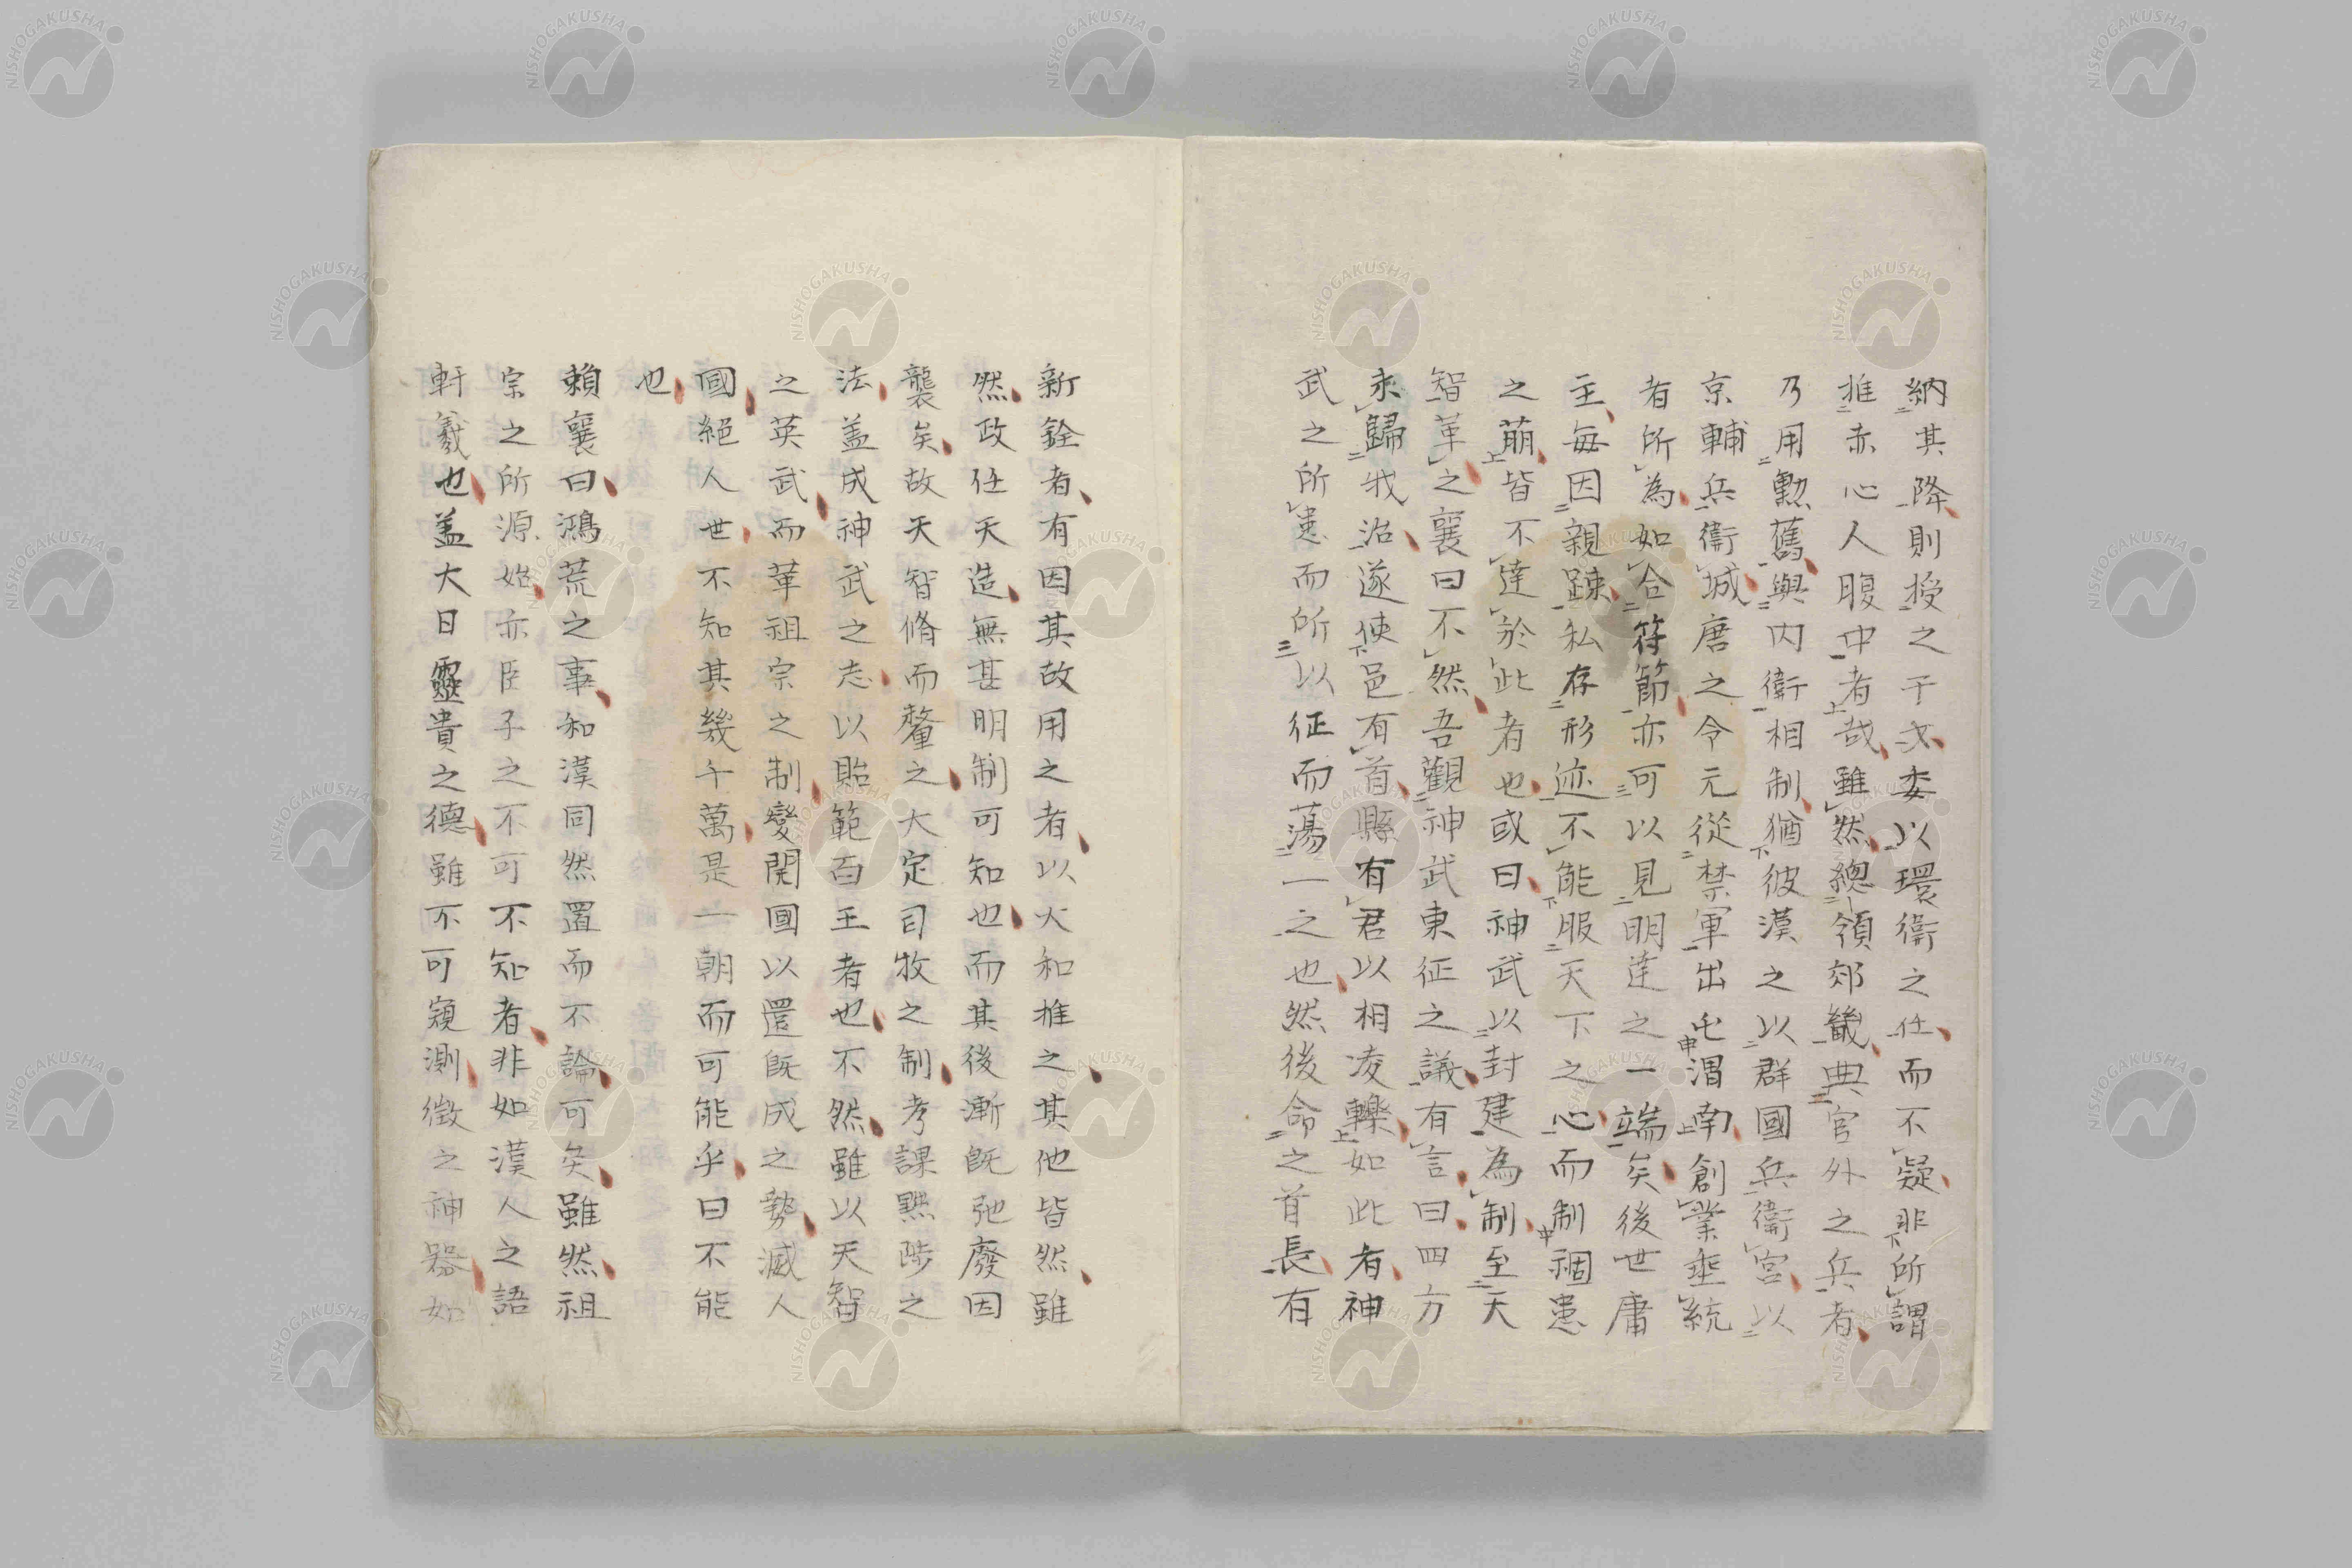 納其降則授之干戈委以環衛之任而不疑非所謂
推赤心人腹中者哉雖然總領郊畿典官外之兵者
乃用勳舊與内衛相制猶彼漢之以群國兵衛宮以
京輔兵衛城唐之令元從禁軍出屯渭南創業垂統
者所為如合符節亦可以見明達之一端矣後世庸
主每因親踈私存形迹不能服天下之心而制禍患
之萠皆不達於此者也或曰神武以封建為制至天
智革之襄曰不然吾觀神武東征之議有言曰四方
未歸我治遂使邑有首縣有君以相凌轢如此者神
武之所患而所以征而蕩一之也然後命之首長有
新銓者有因其故用之者以大和推之其他皆然雖
然政任天造無甚明制可知也而其後漸既弛廢因
襲矣故天智脩而釐之大定司牧之制考課黙陟之
法盖成神武之志以貽範百王者也不然雖以天智
之英武而革祖宗之制變開國以還既成之勢滅人
國絕人世不知其幾千萬是一朝而可能乎曰不能
也
賴襄曰鴻荒之事和漢同然置而不論可矣雖然祖
宗之所源始亦臣子之不可不知者非如漢人之語
軒羲也盖大日靈貴之德雖不可窺測徵之神器如